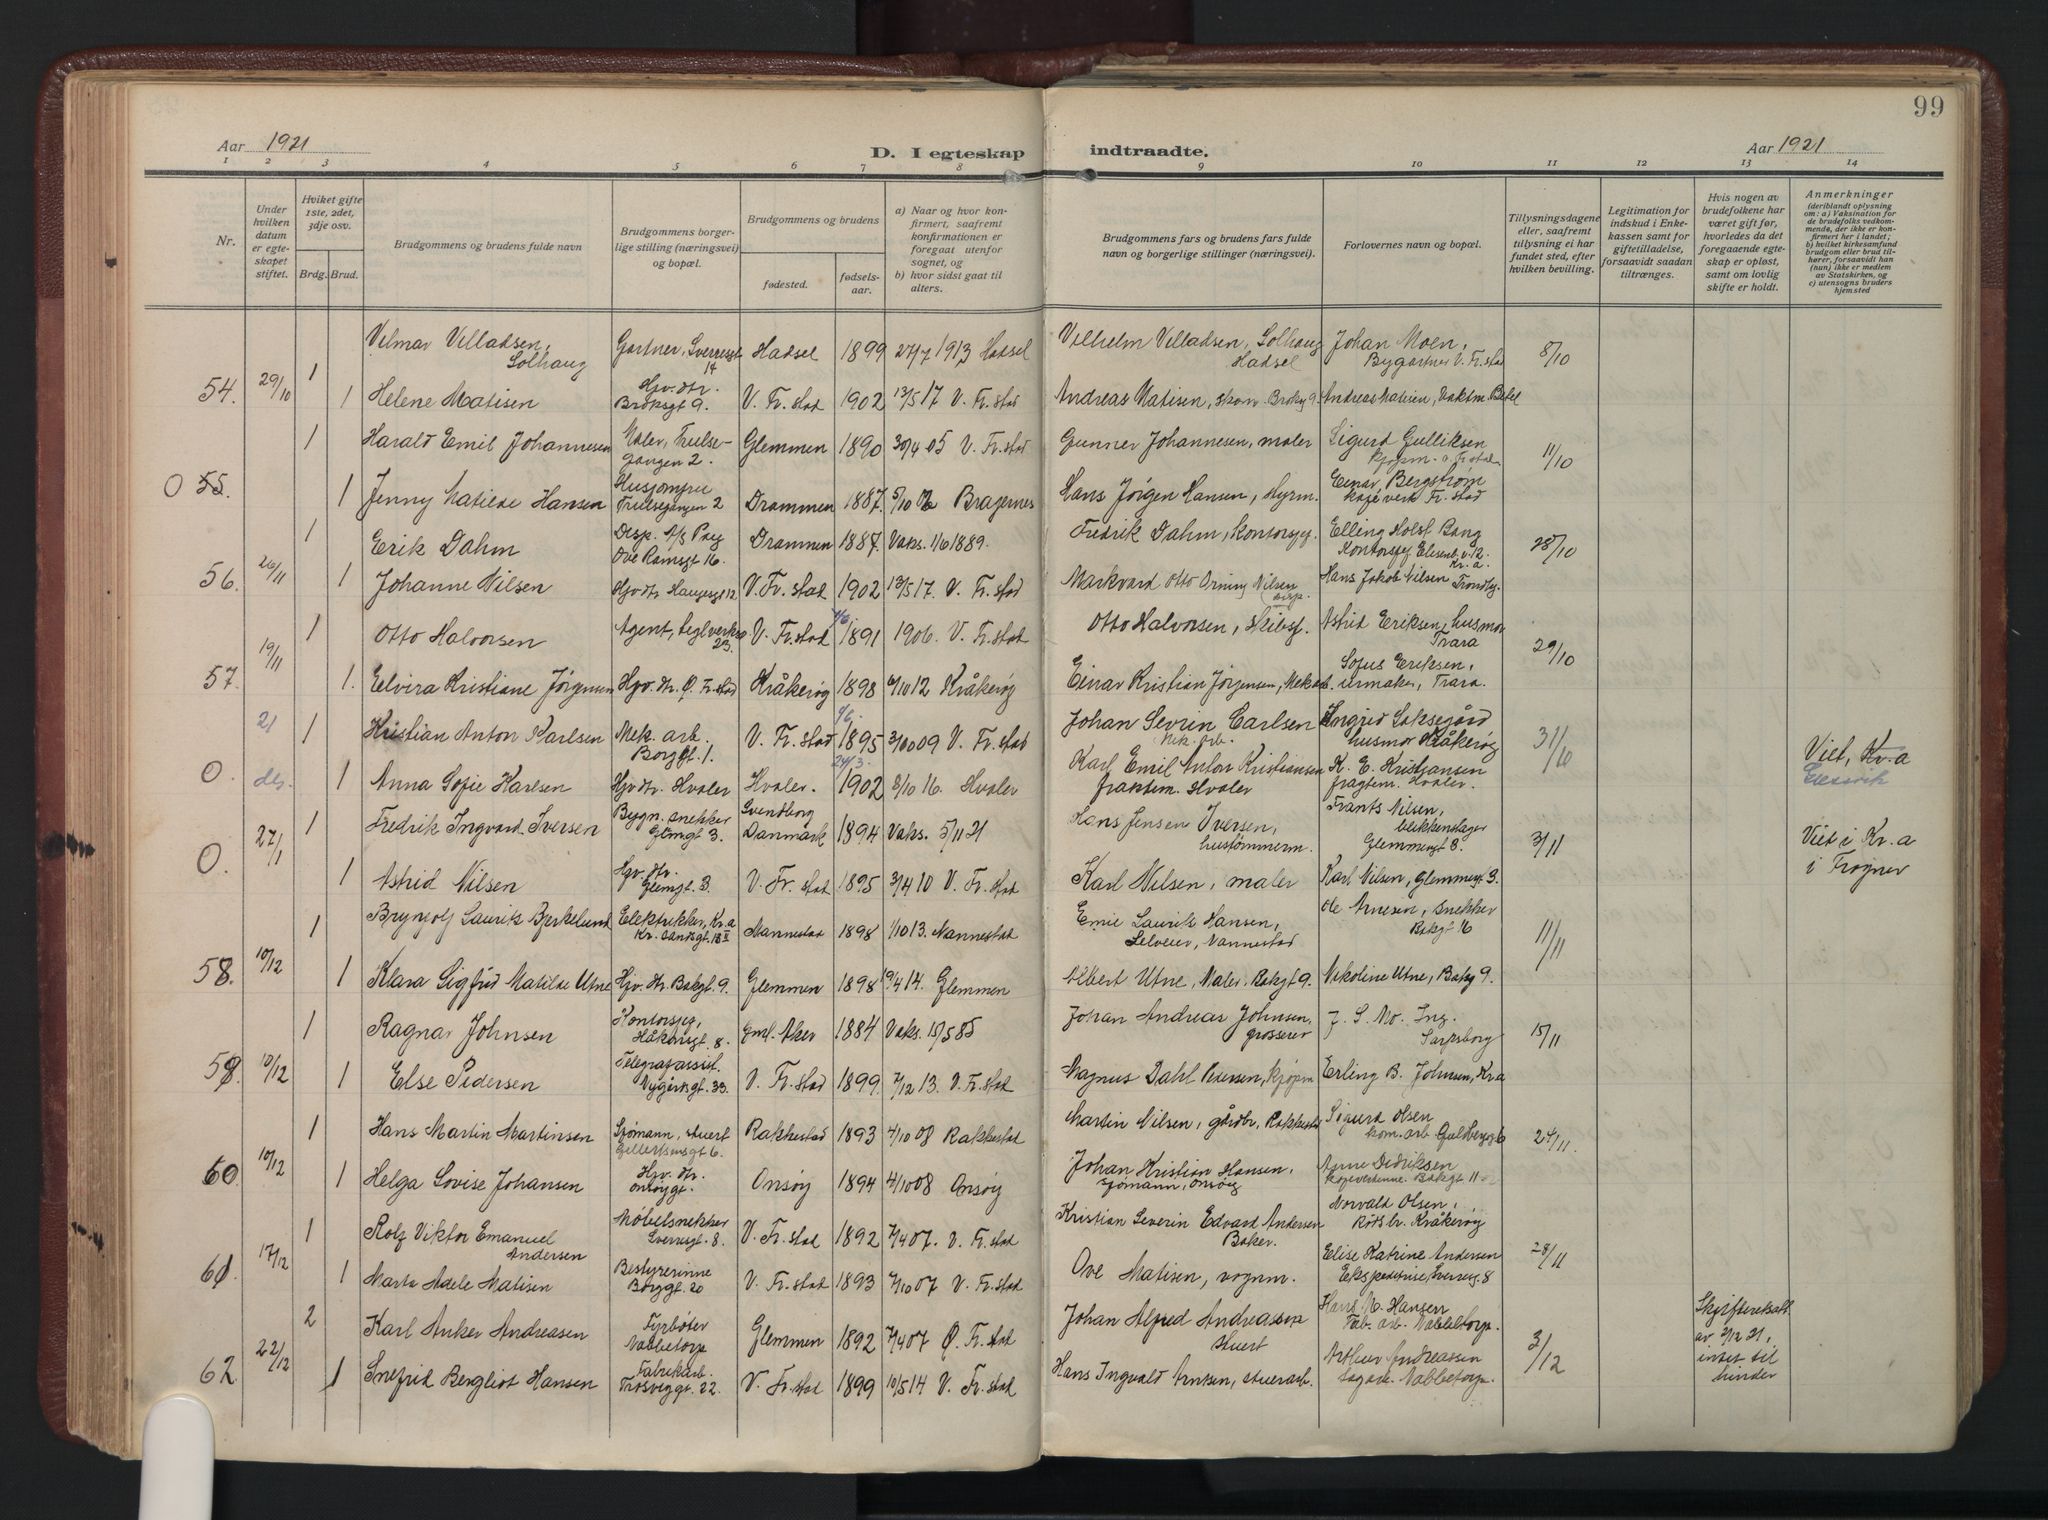 99
Aar 1921
D. I egteskap indtraadte.
Aar 1921
1 2 3 4 5 6 7 8 9 10 11 12 13 14
Nr.
Under hvilken datum er egteskapet stiftet.
Hviket gifte 1ste, 2det, 3dje osv.
Brdg. Brud.
Brudgommens og brudens fulde navn
Brudgommens borgerlige stilling (næringsvei) og bopæl.
Brudgommens og brudens
fødested.
fødselsaar.
a) Naar og hvor konfirmert, saafremt konfirmationen er foregaat utenfor sognet, og
b) hvor sidst gaat til alters.
Brudgommens fars og brudens fars fulde navn og borgerlige stillinger (næringsvei).
Forlovernes navn og bopæl.
Tillysningsdagene eller, saafremt tillysning ei har fundet sted, efter hvilken bevilling.
Legitimation for indskud i Enkekassen samt for giftetilladelse, forsaavidt saadan tiltrænges.
Hvis nogen av brudefolkene har været gift før, hvorledes da det foregaaende egteskap er opløst, samt om lovlig skifte er holdt.
Anmerkninger
(deriblandt oplysning om: a) Vaksination for de brudefolks vedkommende, der ikke er konfirmert her i landet; b) hvilket kirkesamfund brudgom eller brud tilhører, forsaavidt han (hun) ikke er medlem av Statskirken, og c) utensogns bruders hjemsted
1 Vilmar Villadsen, Solhaug Gartner, Sverresgt 14 Hadsel 1899 27/7 1913 Hadsel Vilhelm Villadsen, Solhaug Hadsel Johan Moen, Bygartner V. Fr.stad 8/10
54. 29/10 1 Helene Matisen Hjv. dtr. Broksgt 9. V. Fr.stad 1902 13/5 17 V. Fr.stad Andreas Matisen, Andreas Matisen,
1 Harald Emil Johannesen Maler, Trulsegangen 2. Glemmen 1890 30/4 05 V. Fr.stad Gunner Johannesen, maler Sigurd Gulliksen kjøpm. V. Fr.stad 11/10
O 55. 1 Jenny Matilde Hansen Husjomfru Trulsegangen 2 Drammen 1887. 5/10 02 Bragernes Hans Jørgen Hansen, Styrm. Einar Bergstrøm Fr.stad
1 Erik Dahm Disp. Ove Ramsgt 16. Drammen 1887. Vaks. 1/6 1889. Fredrik Dahm, kontorsjef. Elling Holst Bang Kontorsjef Kr.a. 28/10
56. 26/11 1 Johanne Nilsen Hjv dtr Haugesgt 12 V. Fr.stad 1902 13/5 17. V. Fr.stad Markvard Otto Orning Nilsen disp. Hans Jakob Nilsen
1 Otto Halvorsen Agent, 23. V. Fr.stad 1891 1906. V. Fr.stad Otto Halvorsen, Skibsf. Astrid Eriksen, husmor Trara 29/10
57. 19/11 1. Elvira Kristiane Jørgensen Hjv. dtr. Ø. Fr.stad Kråkerøy 1898 6/10 12 Kråkerøy Einar Kristian Jørgensen, Mek.arb. Sofus Eriksen, urmaker, Trara.
21 1 Kristian Anton Karlsen Mek. arb. Borggt. 1. V. Fr.stad 1895 3/10 09 V. Fr.stad Johan Sevrin Carlsen Mek. arb. Ingrid husmor Kråkerøy 31/10
O. 1 Anna Sofie Karlsen Hjv dtr. Hvaler Hvaler. 24/3. 1902 8/10 16. Hvaler Karl Emil Anton Kristiansen fraktem. Hvaler K. E. Kristiansen fragtem. Hvaler. Viet, Kr.a
1 Fredrik Ingvard Iversen Bygn. snekker Glemgt 3. Svendborg Danmark 1894 Vaks. 5/11 21 Hans Jensen Iversen, hustømmerm. Frants Nilsen, blikkenslager Glemmengt 8. 3/11
O. 27/1 1 Astrid Nilsen Hjv. dtr. Glemgt. 3. V. Fr.stad 1895 3/4 10 V. Fr.stad Karl Nilsen, maler Karl Nilsen, Glemmengt 3. Viet i Kr.a i Frogner
1 Brynjolf Laurits Bjerkelund Elektrikker, Kr.a Nannestad 1898 1/10 13. Nannestad Emil Laurits Hansen, Selveier, Nannestad Ole Arnesen, snekker Bakgt 16 11/11
58. 10/12 1 Klara Sigfrid Matilde Utne Hjv. dtr. Bakgt 9. Glemmen 1898 19/4 14. Glemmen Albert Utne, Maler. Bakgt 9. Nikoline Utne, Bakg 9.
1 Ragnar Johnsen Kontorsjef, Håkonsgt. 8. Gml. Aker 1884 Vaks. 15/5 85 Johan Andreas Johnsen, grosserer J. S. Mo. Ing. Sarpsborg 15/11
59. 10/12 1 Else Pedersen Telegrafassist. Nygårdsgt. 33. V. Fr.stad 1899. 7/12 13. V. Fr.stad Magnus Dahl Pedersen, kjøpm Erling B. Johnsen, Kr.a
1 Hans Martin Martinsen Sjømann, stuert Gillertsensgt 6. Rakkestad 1893 4/10 08 Rakkestad Martin Nilsen, gårdbr, Rakkestad Sigurd Olsen kom. arb 24/11.
60. 10/12 1 Helga Lovise Johansen Hjv. dtr. Onsøygt. Onsøy 1894 4/10 08 Onsøy Johan Kristian Hansen, sjømann, Onsøy Anne Didriksen Bakgt 11
1 Rolf Viktor Emanuel Andersen Møbelsnekker Sverresgt. 8. V. Fr.stad 1892 7/4 07. V. Fr.stad Kristian Severin Edvard Andersen Baker. Norvald Olsen, Kråkerøy 28/11
61. 17/12 1 Marta Adele Matisen Bestyrerinne Borggt. 20 V. Fr.stad 1893 7/10 07 V. Fr.stad Ove Matisen, vognm. Elise Katrine Andersen Ekspeditrise, Sverresg. 8
2 Karl Anker Andreasen Fyrbøter Nabbetorp Glemmen 1892 7/4 07 Ø. Fr.stad Johan Alfred Andreassen Stuert Hans M. Hansen Fab. arb. Nabbetorp. 3/12 Skifteretsatt. av 2/12 21, intet til hinder
62. 22/12 1 Snefrid Bergliot Hansen Fabrikarb. Trosviggt. 22. V. Fr.stad 1899 10/5 14 V. Fr.stad Hans Ingvald Arntsen, stuerarb. Arthur Andreassen Sagarb. Nabbetorp.